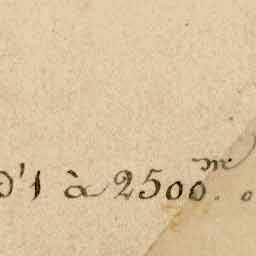 d'1 à 2500.me